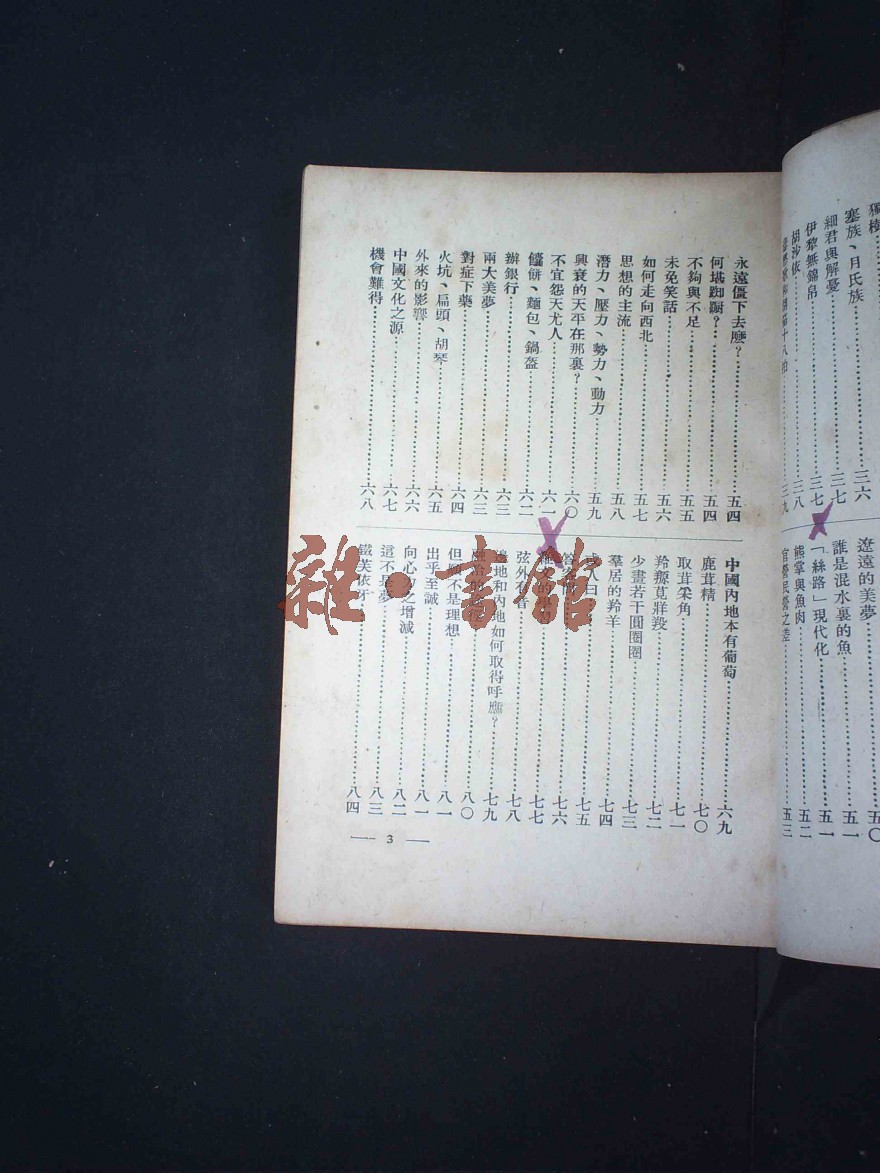 塞族、月氏族……三六
細君與解憂……三七
伊犂無錦帛……三七
胡沙依……三八
遼遠的美夢……五〇
誰是混水裏的魚……五一
「絲路」現代化……五一
熊掌與魚肉……五二
官營民營之差……五三
永遠僵下去麽？……五四
何堪踟蹰？……五四
不夠與不足……五五
未免笑話……五六
如何走向西北……五七
思想的主流……五八
潛力、壓力、勢力、動力……五九
興衰的天平在那裏？……六〇
不宜怨天尤人……六一
饢餅、麵包、鍋盔……六二
辦銀行……六三
兩大美夢……六三
對症下藥……六四
火坑、扁頭、胡琴……六五
外來的影響……六六
中國文化之源……六七
機會難得……六八
中國內地本有葡萄……六九
鹿茸精……七〇
取茸梁角……七一
羚羱莫牂羖……七二
少畫若干圓圈圈……七三
羣居的羚羊……七四
或人曰……七五
……七六
……七七
弦外有音……七八
邊地和內地如何取得呼應？……七九
……八〇
但願不是理想……八一
出乎至誠……八一
向心力之增減……八二
這不是夢……八三
鐵芙依牙……八四
— 3 —
雜·書館